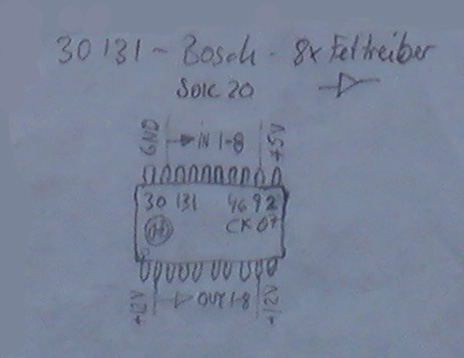 30131 - Bosch - 8x Fettreiber
SOIC 20
GND
IN 1-8
+5V
30 131 4692
CK 07
+12V
OUT 1-8
+12V